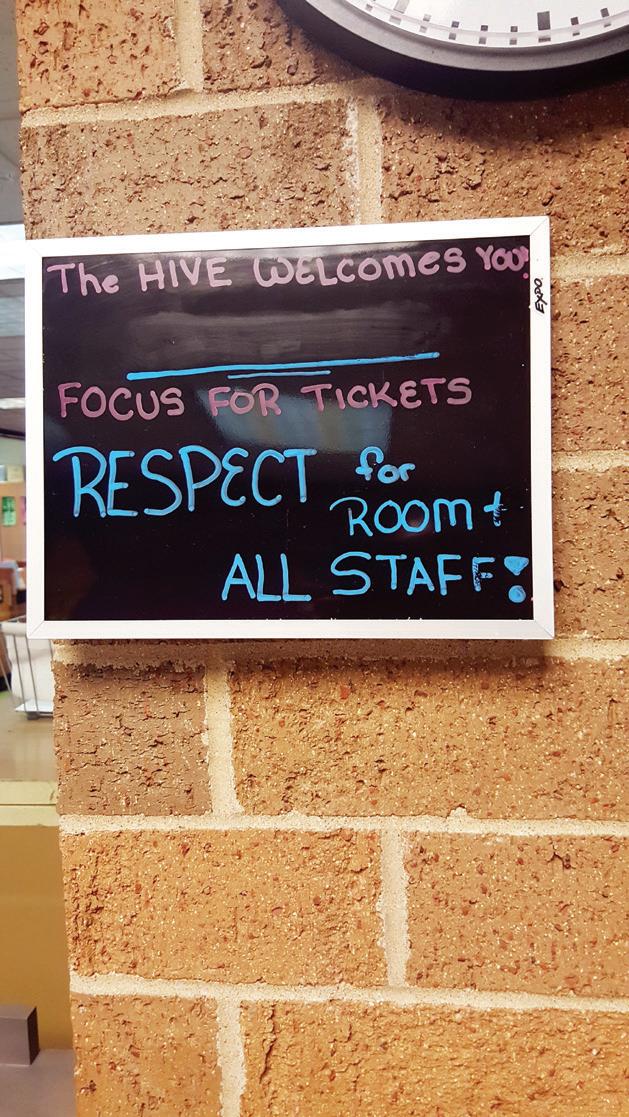 The HIVE WELComes YOU!
EXPO
FOCUS FOR TICKETS
RESPECT for
ROOM +
ALL STAFF!